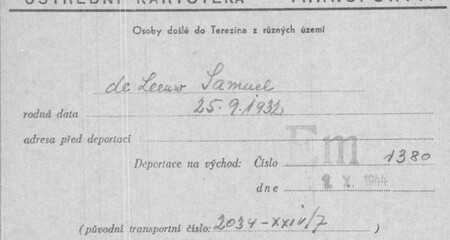 ÚSTŘEDNÍ KARTOTÉKA — TRANSPORTY.
Osoby došlé do Terezína z různých území
de Leeuw Samuel
rodná data 25.9.1932
adresa před deportací
Deportace na východ: Číslo Em 1380
dne X. 1944
(původní transportní číslo: 2034-XXIV/7)